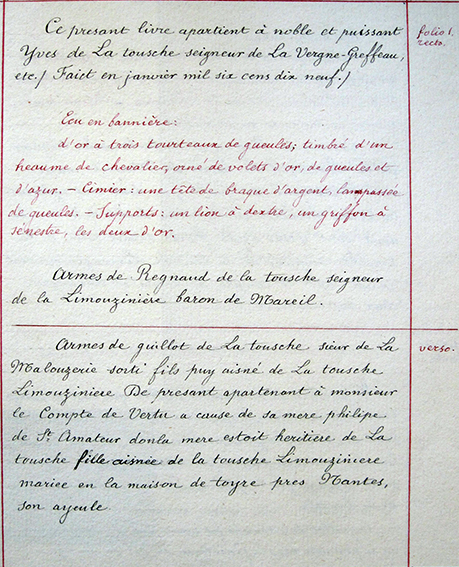 Ce presant livre apartient à noble et puissant
Yves de La tousche seigneur de La Vergne-Greffeau,
etc./ Faict en janvier mil six cens dix neuf./
folio 1.
recto.
Ecu en bannière:
d'or à trois tourteaux de gueules; timbré d'un
heaume de chevalier, orné de volets d'or, de gueules et
d'azur. – Cimier: une tête de braque d'argent, lampassée
de gueules. – Supports: un lion à dextre, un griffon à
sénestre, les deux d'or.
Armes de Regnaud de la tousche seigneur
de la Limouzinière baron de Mareil.
Armes de guillot de La tousche sieur de La
verso.
Malouzerie sorti fils puy aisné de La tousche
Limouziniere De presant apartenant à monsieur
le Compte de Vertu a cause de sa mere philipe
de St. Amateur donla mere estoit heritiere de La
tousche fille aisnée de la tousche Limouziniere
mariee en la maison de toyre pres Nantes,
son ayeule